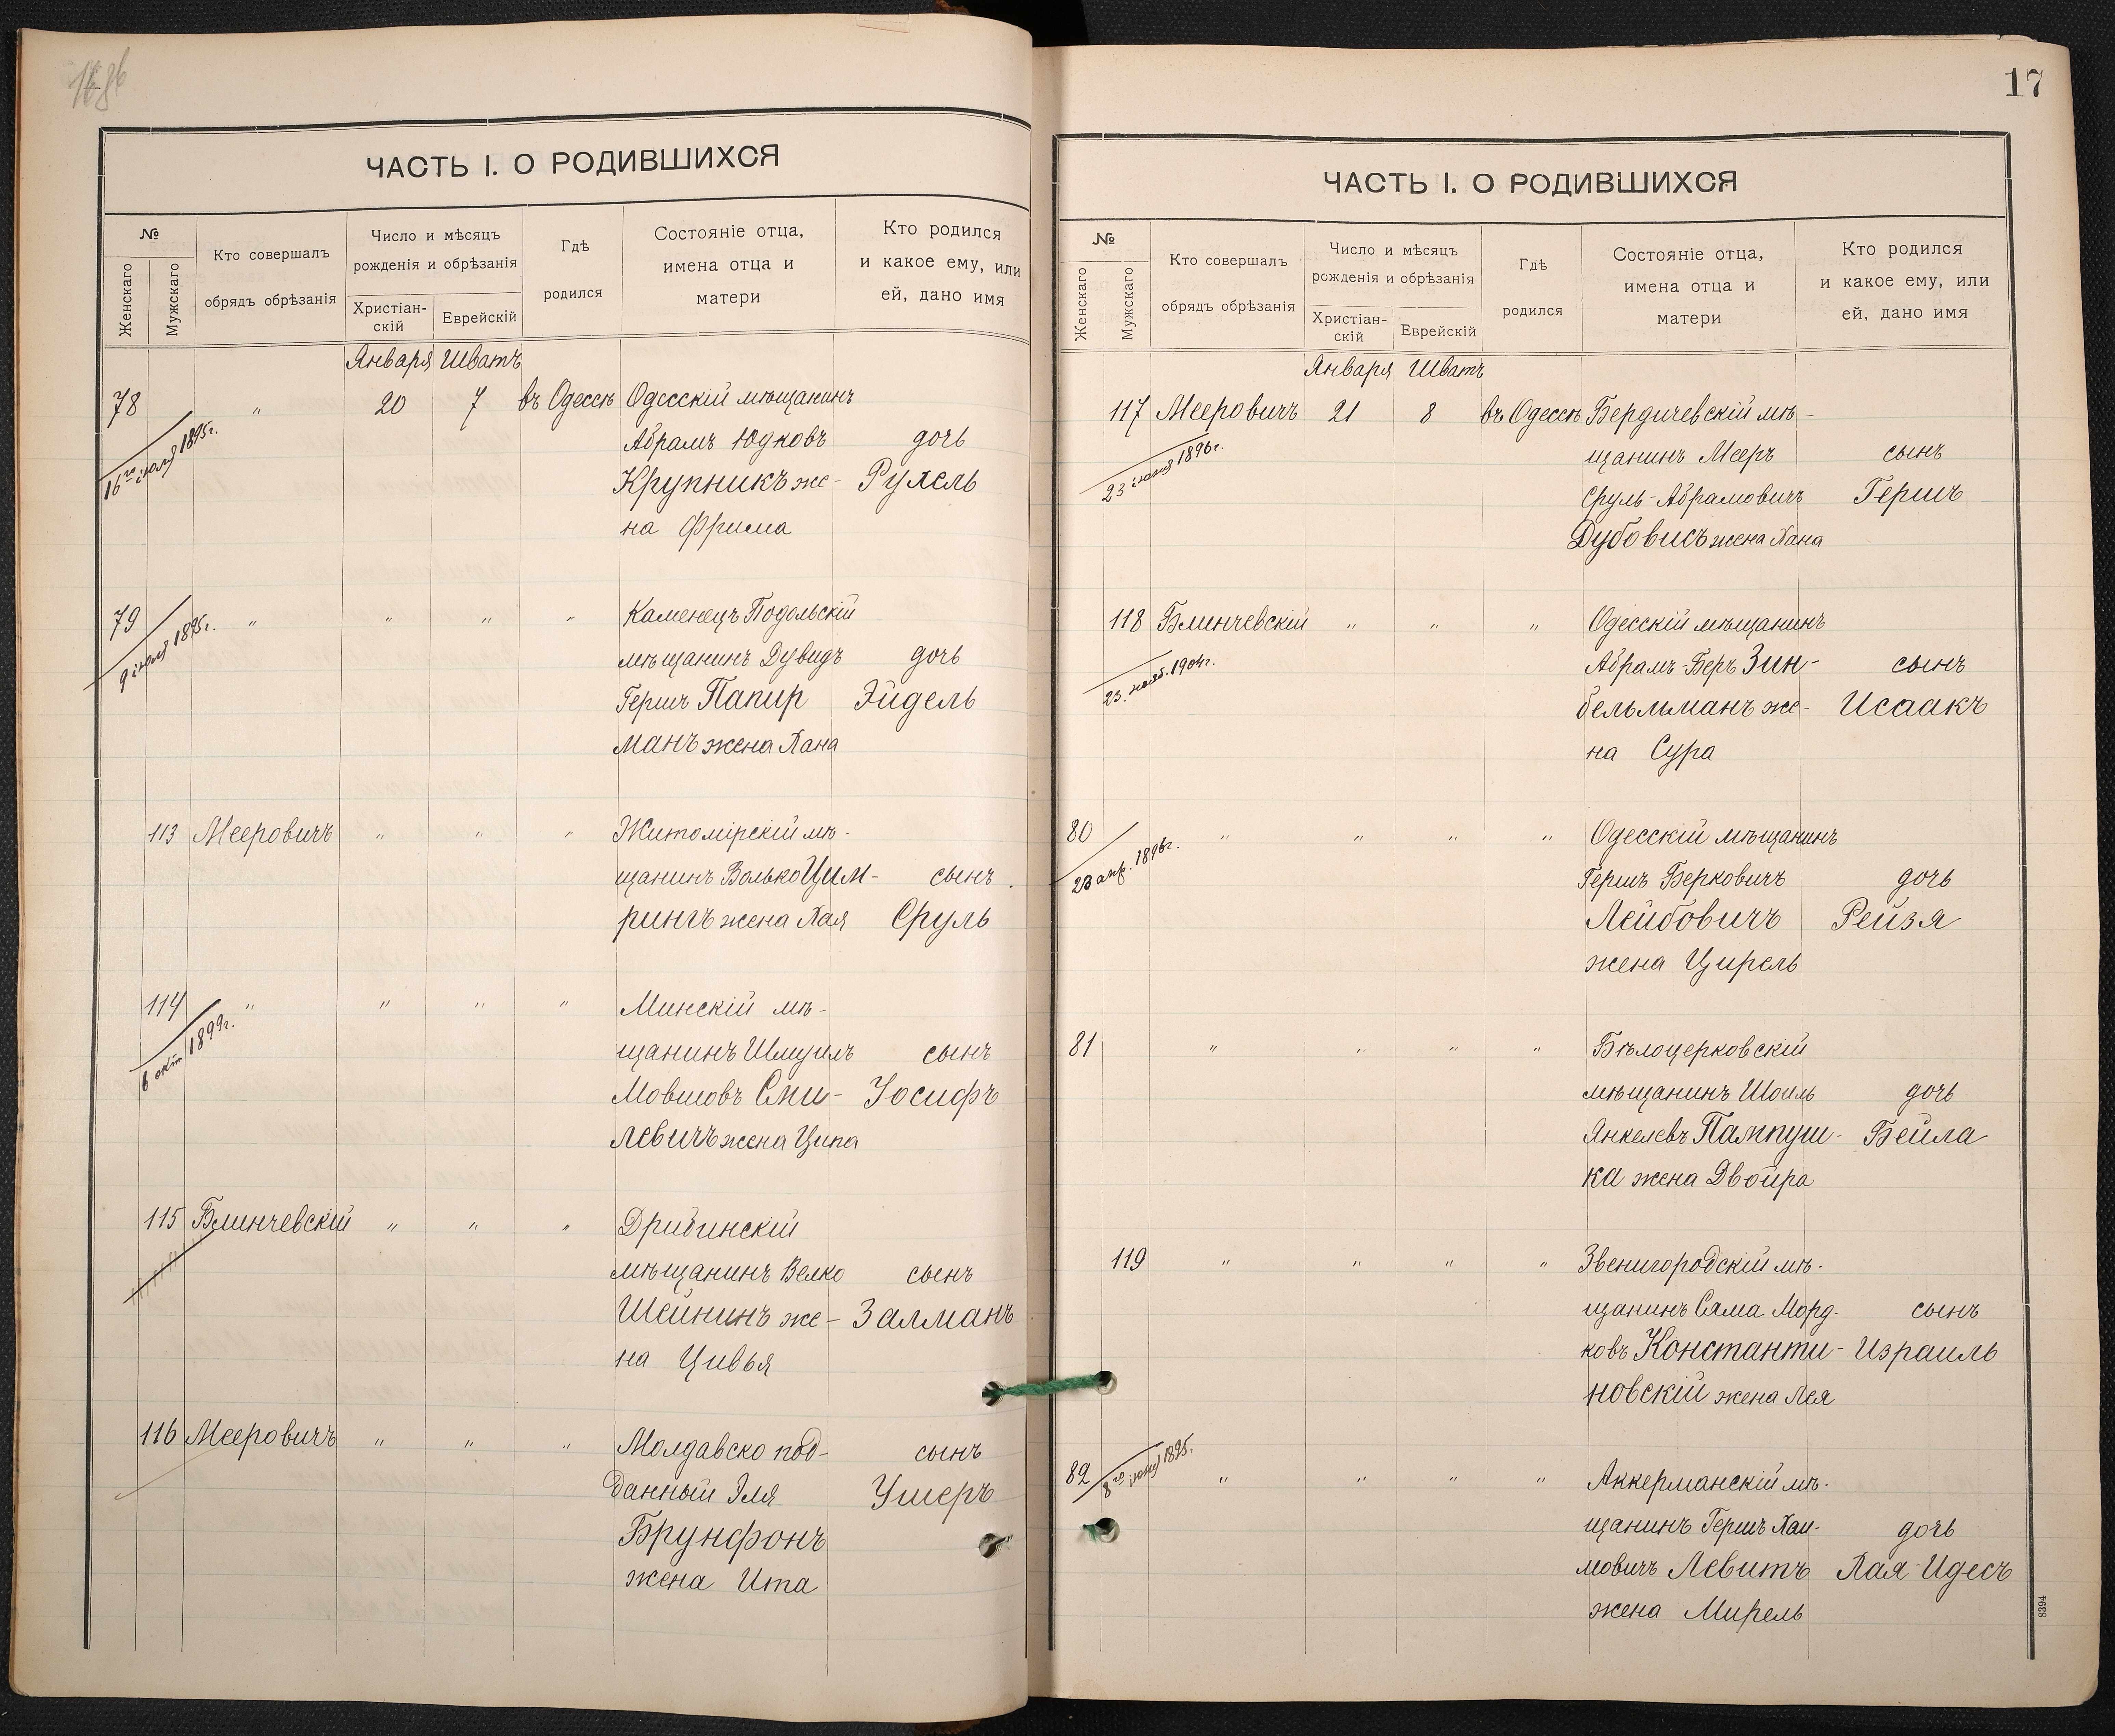 ЧАСТЬ I. О РОДИВШИХСЯ
№
Женскаго
Мужскаго
Кто совершалъ
обрядъ обрѣзанія
Число и мѣсяцъ
рожденія и обрѣзанія
Христіан-
скій
Еврейскій
Гдѣ
родился
Состояніе отца,
имена отца и
матери
Кто родился
и какое ему, или
ей, дано имя
Января Шватъ
78 " 20 7 въ Одессѣ Одесскій мѣщанинъ
16го іюля 1895г.
Абрамъ Юдковъ дочь
Крупникъ же- Рухель
на Фрима
79 " " " " Каменецъ Подольскій
9 іюля 1895г.
мѣщанинъ Дувидъ дочь
Гершъ Папир Эйдель
манъ жена Хана
113 Мееровичъ " " " Житомірскій мѣ-
щанинъ Волько Цим- сынъ
рингъ жена Хая Сруль
114 " " " " Минскій мѣ-
6 окт 1899г.
щанинъ Шмуилъ сынъ
Мовшовъ Сми- Іосифъ
левичъ жена Ципа
115 Блинчевскій " " " Дрибинскій
мѣщанинъ Велко сынъ
Шейнинъ же- Залманъ
на Цивья
116 Мееровичъ " " " Молдавско под- сынъ
данный Эля Ушеръ
Брунфонъ
жена Ита
17
ЧАСТЬ I. О РОДИВШИХСЯ
№
Женскаго
Мужскаго
Кто совершалъ
обрядъ обрѣзанія
Число и мѣсяцъ
рожденія и обрѣзанія
Христіан-
скій
Еврейскій
Гдѣ
родился
Состояніе отца,
имена отца и
матери
Кто родился
и какое ему, или
ей, дано имя
Января Шватъ
117 Мееровичъ 21 8 въ Одессѣ Бердичевскій мѣ-
23 1896г.
щанинъ Мееръ сынъ
Сруль-Абрамовичъ Гершъ
Дубовисъ жена Хана
118 Блинчевскій " " " Одесскій мѣщанинъ
23. 1904г.
Абрамъ-Беръ Зин- сынъ
бельманъ же- Исаакъ
на Сура
80 " " " " Одесскій мѣщанинъ
23 апр. 1896г.
Гершъ Берковичъ дочь
Лейбовичъ Рейзя
жена Цирель
81 " " " " Бѣлоцерковскій
мѣщанинъ Шоиль дочь
Янкелевъ Пампуш- Бейла
ка жена Двойра
119 " " " " Звенигородскій мѣ-
щанинъ Сяма Морд- сынъ
ковъ Константи- Израиль
новскій жена Лея
82 " " " " Аккерманскій мѣ-
8го 1895.
щанинъ Гершъ Хаи- дочь
мовичъ Левитъ Хая-Идесъ
жена Мирель
8394